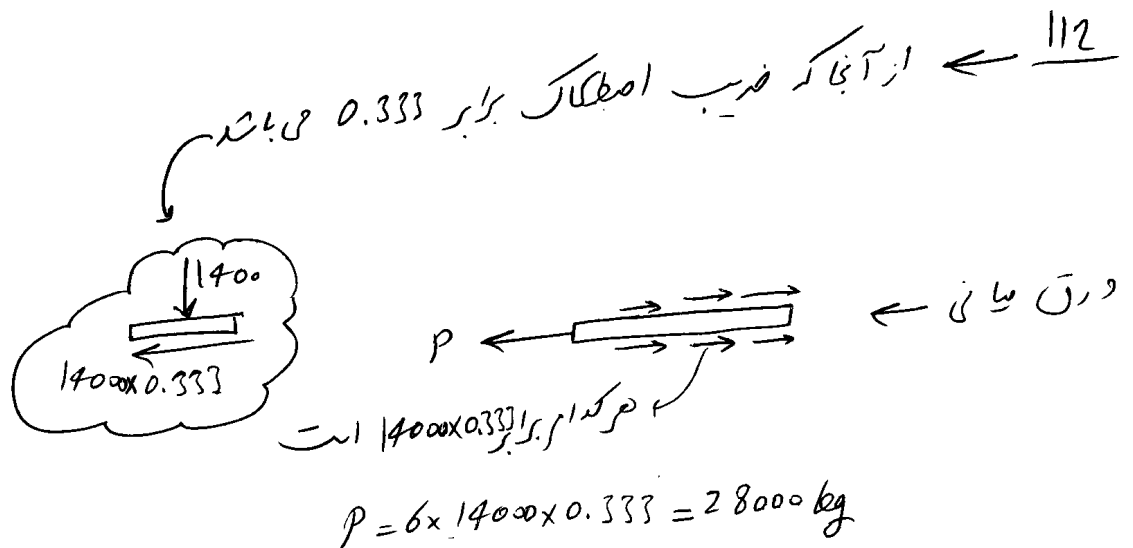 112 ← از آنجا که ضریب اصطکاک برابر 0.333 می باشد
1400
14000x0.333
ورق میانی ←
P
هر کدام برابر 14000x0.333 است
P = 6x 14000x0.333 = 28000 kg